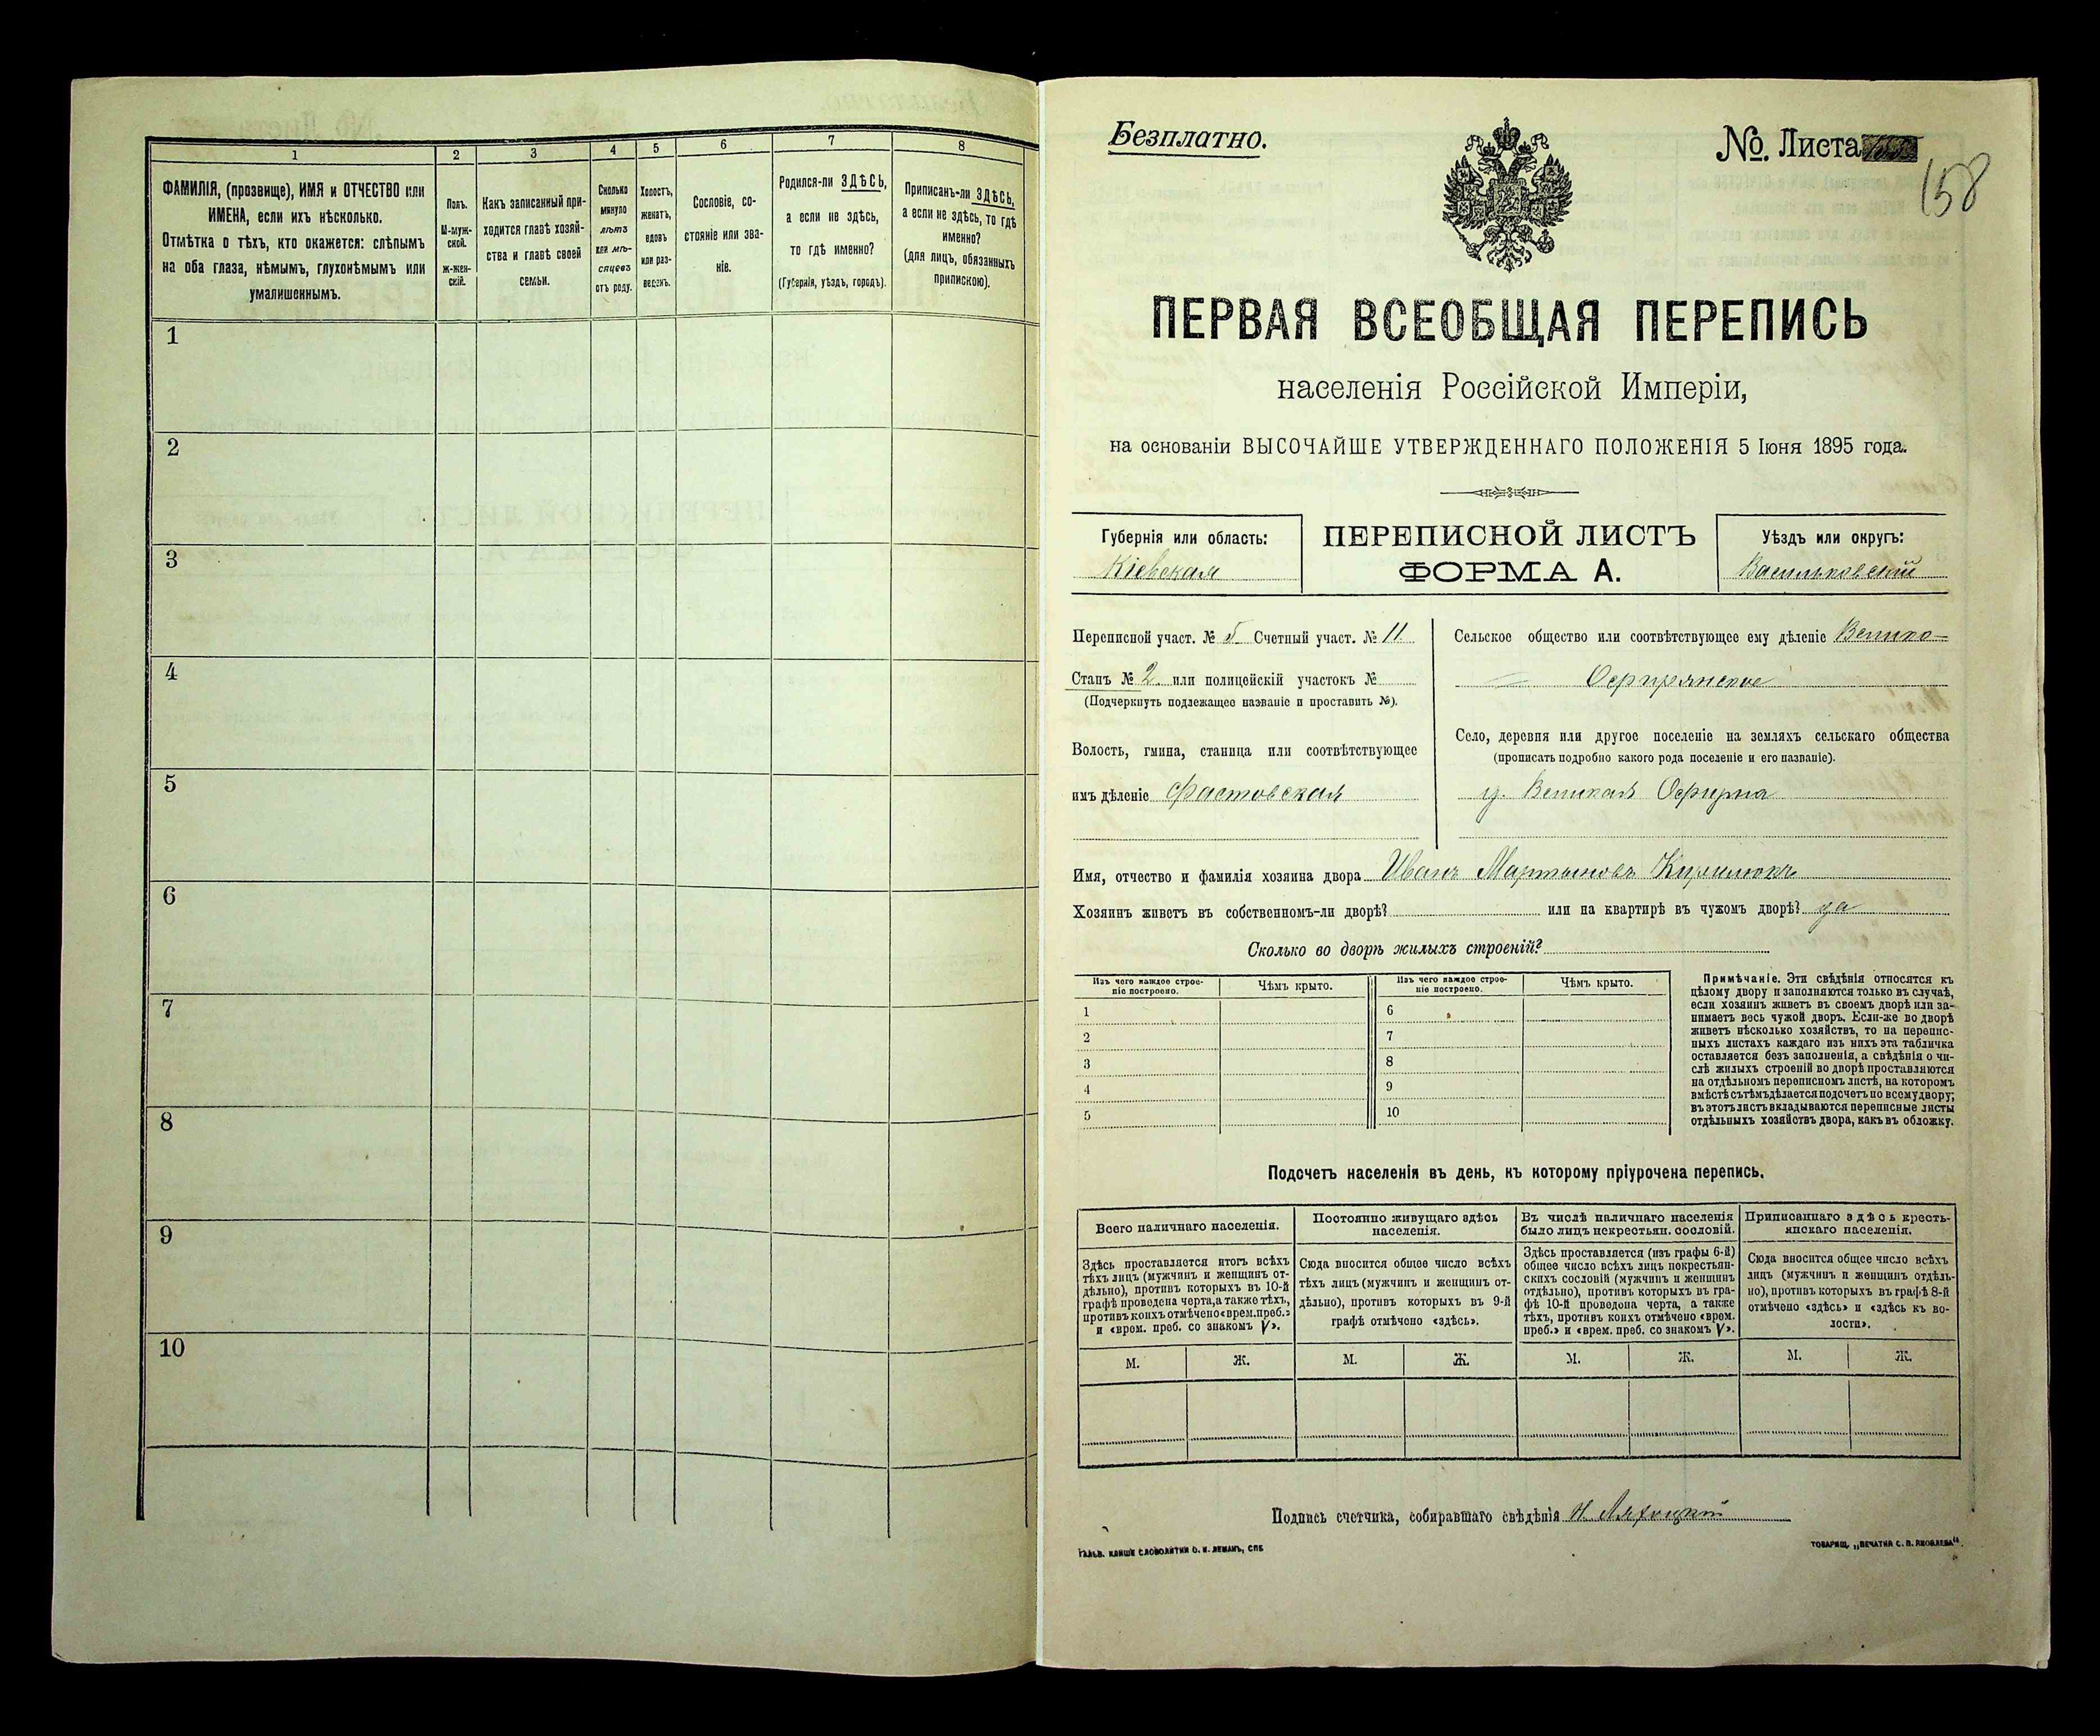 1
2
3
4
5
6
7
8
ФАМИЛІЯ, (прозвище), ИМЯ и ОТЧЕСТВО или
ИМЕНА, если ихъ нѣсколько.
Отмѣтка о тѣхъ, кто окажется: слѣпымъ
на оба глаза, нѣмымъ, глухонѣмымъ или
умалишеннымъ.
Полъ.
М-муж-
ской.
Ж-жен-
скій.
Какъ записанный при-
ходится главѣ хозяй-
ства и главѣ своей
семьи.
Сколько
минуло
лѣтъ
или мѣ-
сяцевъ
отъ роду.
Холостъ,
женатъ,
вдовъ
или раз-
веденъ.
Сословіе, со-
стояніе или зва-
ніе.
Родился-ли ЗДѢСЬ,
а если не здѣсь,
то гдѣ именно?
(Губернія, уѣздъ, городъ).
Приписанъ-ли ЗДѢСЬ,
а если не здѣсь, то гдѣ
именно?
(для лицъ, обязанныхъ
припискою).
1
2
3
4
5
6
7
8
9
10
Безплатно.
№. Листа
158
ПЕРВАЯ ВСЕОБЩАЯ ПЕРЕПИСЬ
населенія Россійской Имперіи,
на основаніи ВЫСОЧАЙШЕ УТВЕРЖДЕННАГО ПОЛОЖЕНІЯ 5 Іюня 1895 года.
Губернія или область:
Кіевская
ПЕРЕПИСНОЙ ЛИСТЪ
ФОРМА А.
Уѣздъ или округъ:
Васильковскій
Переписной участ. № 5 Счетный участ. № 11
Станъ № 2 или полицейскій участокъ №
(Подчеркнуть подлежащее названіе и проставить №).
Волость, гмина, станица или соотвѣтствующее
имъ дѣленіе Фастовская
Сельское общество или соотвѣтствующее ему дѣленіе Велико-
Офирнянское
Село, деревня или другое поселеніе на земляхъ сельскаго общества
(прописать подробно какого рода поселеніе и его названіе).
Великая Офирна
Имя, отчество и фамилія хозяина двора Иванъ Мартыновъ Кирилюкъ
Хозяинъ живетъ въ собственномъ-ли дворѣ? или на квартирѣ въ чужомъ дворѣ? да
Сколько во дворѣ жилыхъ строеній?
Изъ чего каждое строе-
ніе построено.
Чѣмъ крыто.
Изъ чего каждое строе-
ніе построено.
Чѣмъ крыто.
1
2
3
4
5
6
7
8
9
10
Примѣчаніе. Эти свѣдѣнія относятся къ
цѣлому двору и заполняются только въ случаѣ,
если хозяинъ живетъ въ своемъ дворѣ или за-
нимаетъ весь чужой дворъ. Если-же во дворѣ
живетъ нѣсколько хозяйствъ, то на перепис-
ныхъ листахъ каждаго изъ нихъ эта табличка
оставляется безъ заполненія, а свѣдѣнія о чи-
слѣ жилыхъ строеній во дворѣ проставляются
на отдѣльномъ переписномъ листѣ, на которомъ
вмѣстѣ съ тѣмъ дѣлается подсчетъ по всему двору;
въ этотъ листъ вкладываются переписные листы
отдѣльныхъ хозяйствъ двора, какъ въ обложку.
Подсчетъ населенія въ день, къ которому пріурочена перепись.
Всего наличнаго населенія.
Здѣсь проставляется итогъ всѣхъ
тѣхъ лицъ (мужчинъ и женщинъ от-
дѣльно), противъ которыхъ въ 10-й
графѣ проведена черта, а также тѣхъ,
противъ коихъ отмѣчено «врем. преб.»
и «врем. преб. со знакомъ V».
Постоянно живущаго здѣсь
населенія.
Сюда вносится общее число всѣхъ
тѣхъ лицъ (мужчинъ и женщинъ от-
дѣльно), противъ которыхъ въ 9-й
графѣ отмѣчено «здѣсь».
Въ числѣ наличнаго населенія
было лицъ некрестьян. сословій.
Здѣсь проставляется (изъ графы 6-й)
общее число всѣхъ лицъ некрестьян-
скихъ сословій (мужчинъ и женщинъ
отдѣльно), противъ которыхъ въ гра-
фѣ 10-й проведена черта, а также
тѣхъ, противъ коихъ отмѣчено «врем.
преб.» и «врем. преб. со знакомъ V».
Приписаннаго здѣсь кресть-
янскаго населенія.
Сюда вносится общее число всѣхъ
лицъ (мужчинъ и женщинъ отдѣль-
но), противъ которыхъ въ графѣ 8-й
отмѣчено «здѣсь» и «здѣсь къ во-
лости».
М. Ж. М. Ж. М. Ж. М. Ж.
Подпись счетчика, собиравшаго свѣдѣнія
ГАЛЬВ. КЛИШЕ СЛОВОЛИТНИ О. И. ЛЕМАНЪ, СПБ
ТОВАРИЩ. „ПЕЧАТНЯ С. П. ЯКОВЛЕВА".